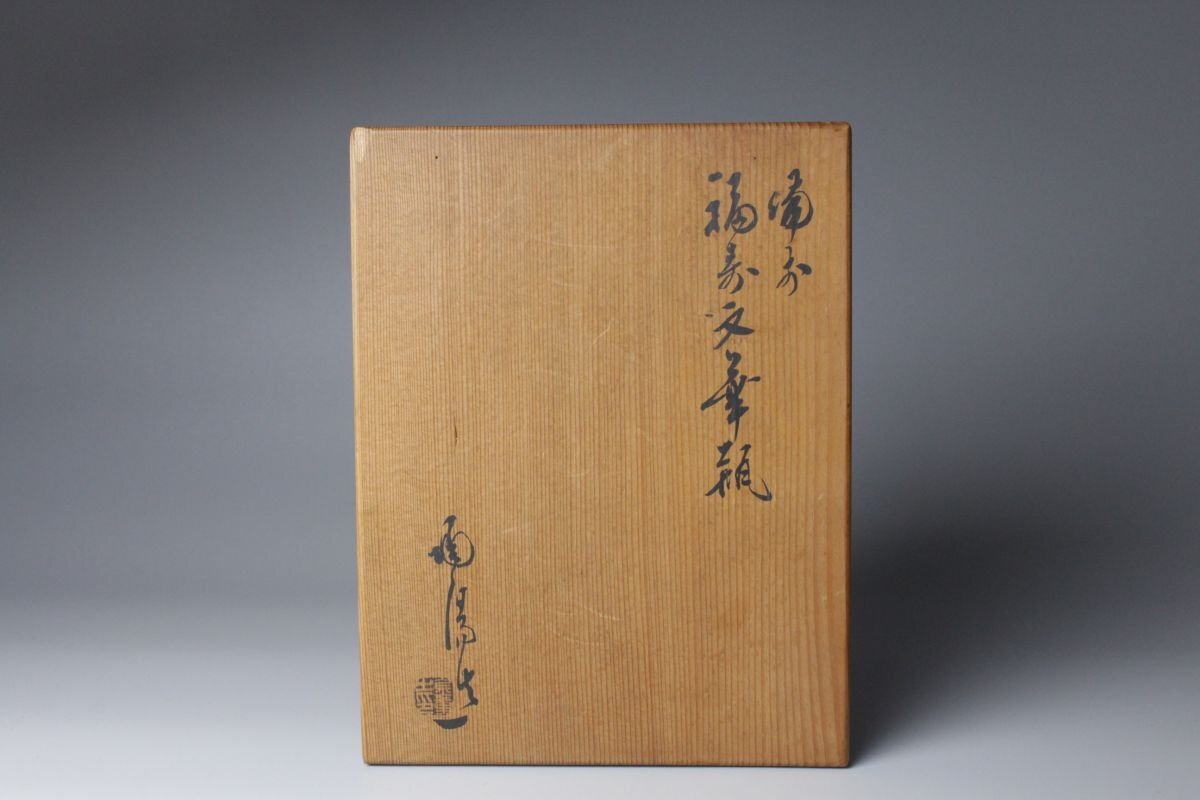 備前
福寿文華瓶
陶陽造